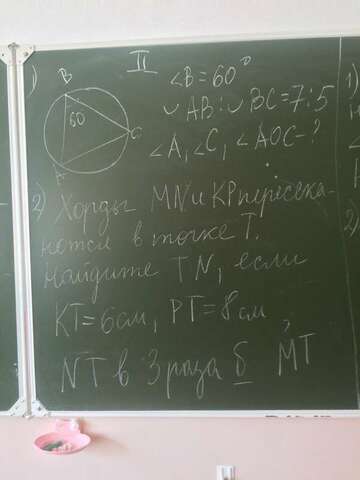 II
1)
B
60
C
A
∠B = 60°
◡AB : ◡BC = 7:5
∠A, ∠C, ∠AOC - ?
2) Хорды MN и KP пересека-
ются в точке T.
Найдите TN, если
KT = 6 см, PT = 8 см
NT в 3 раза б MT
1)
2)